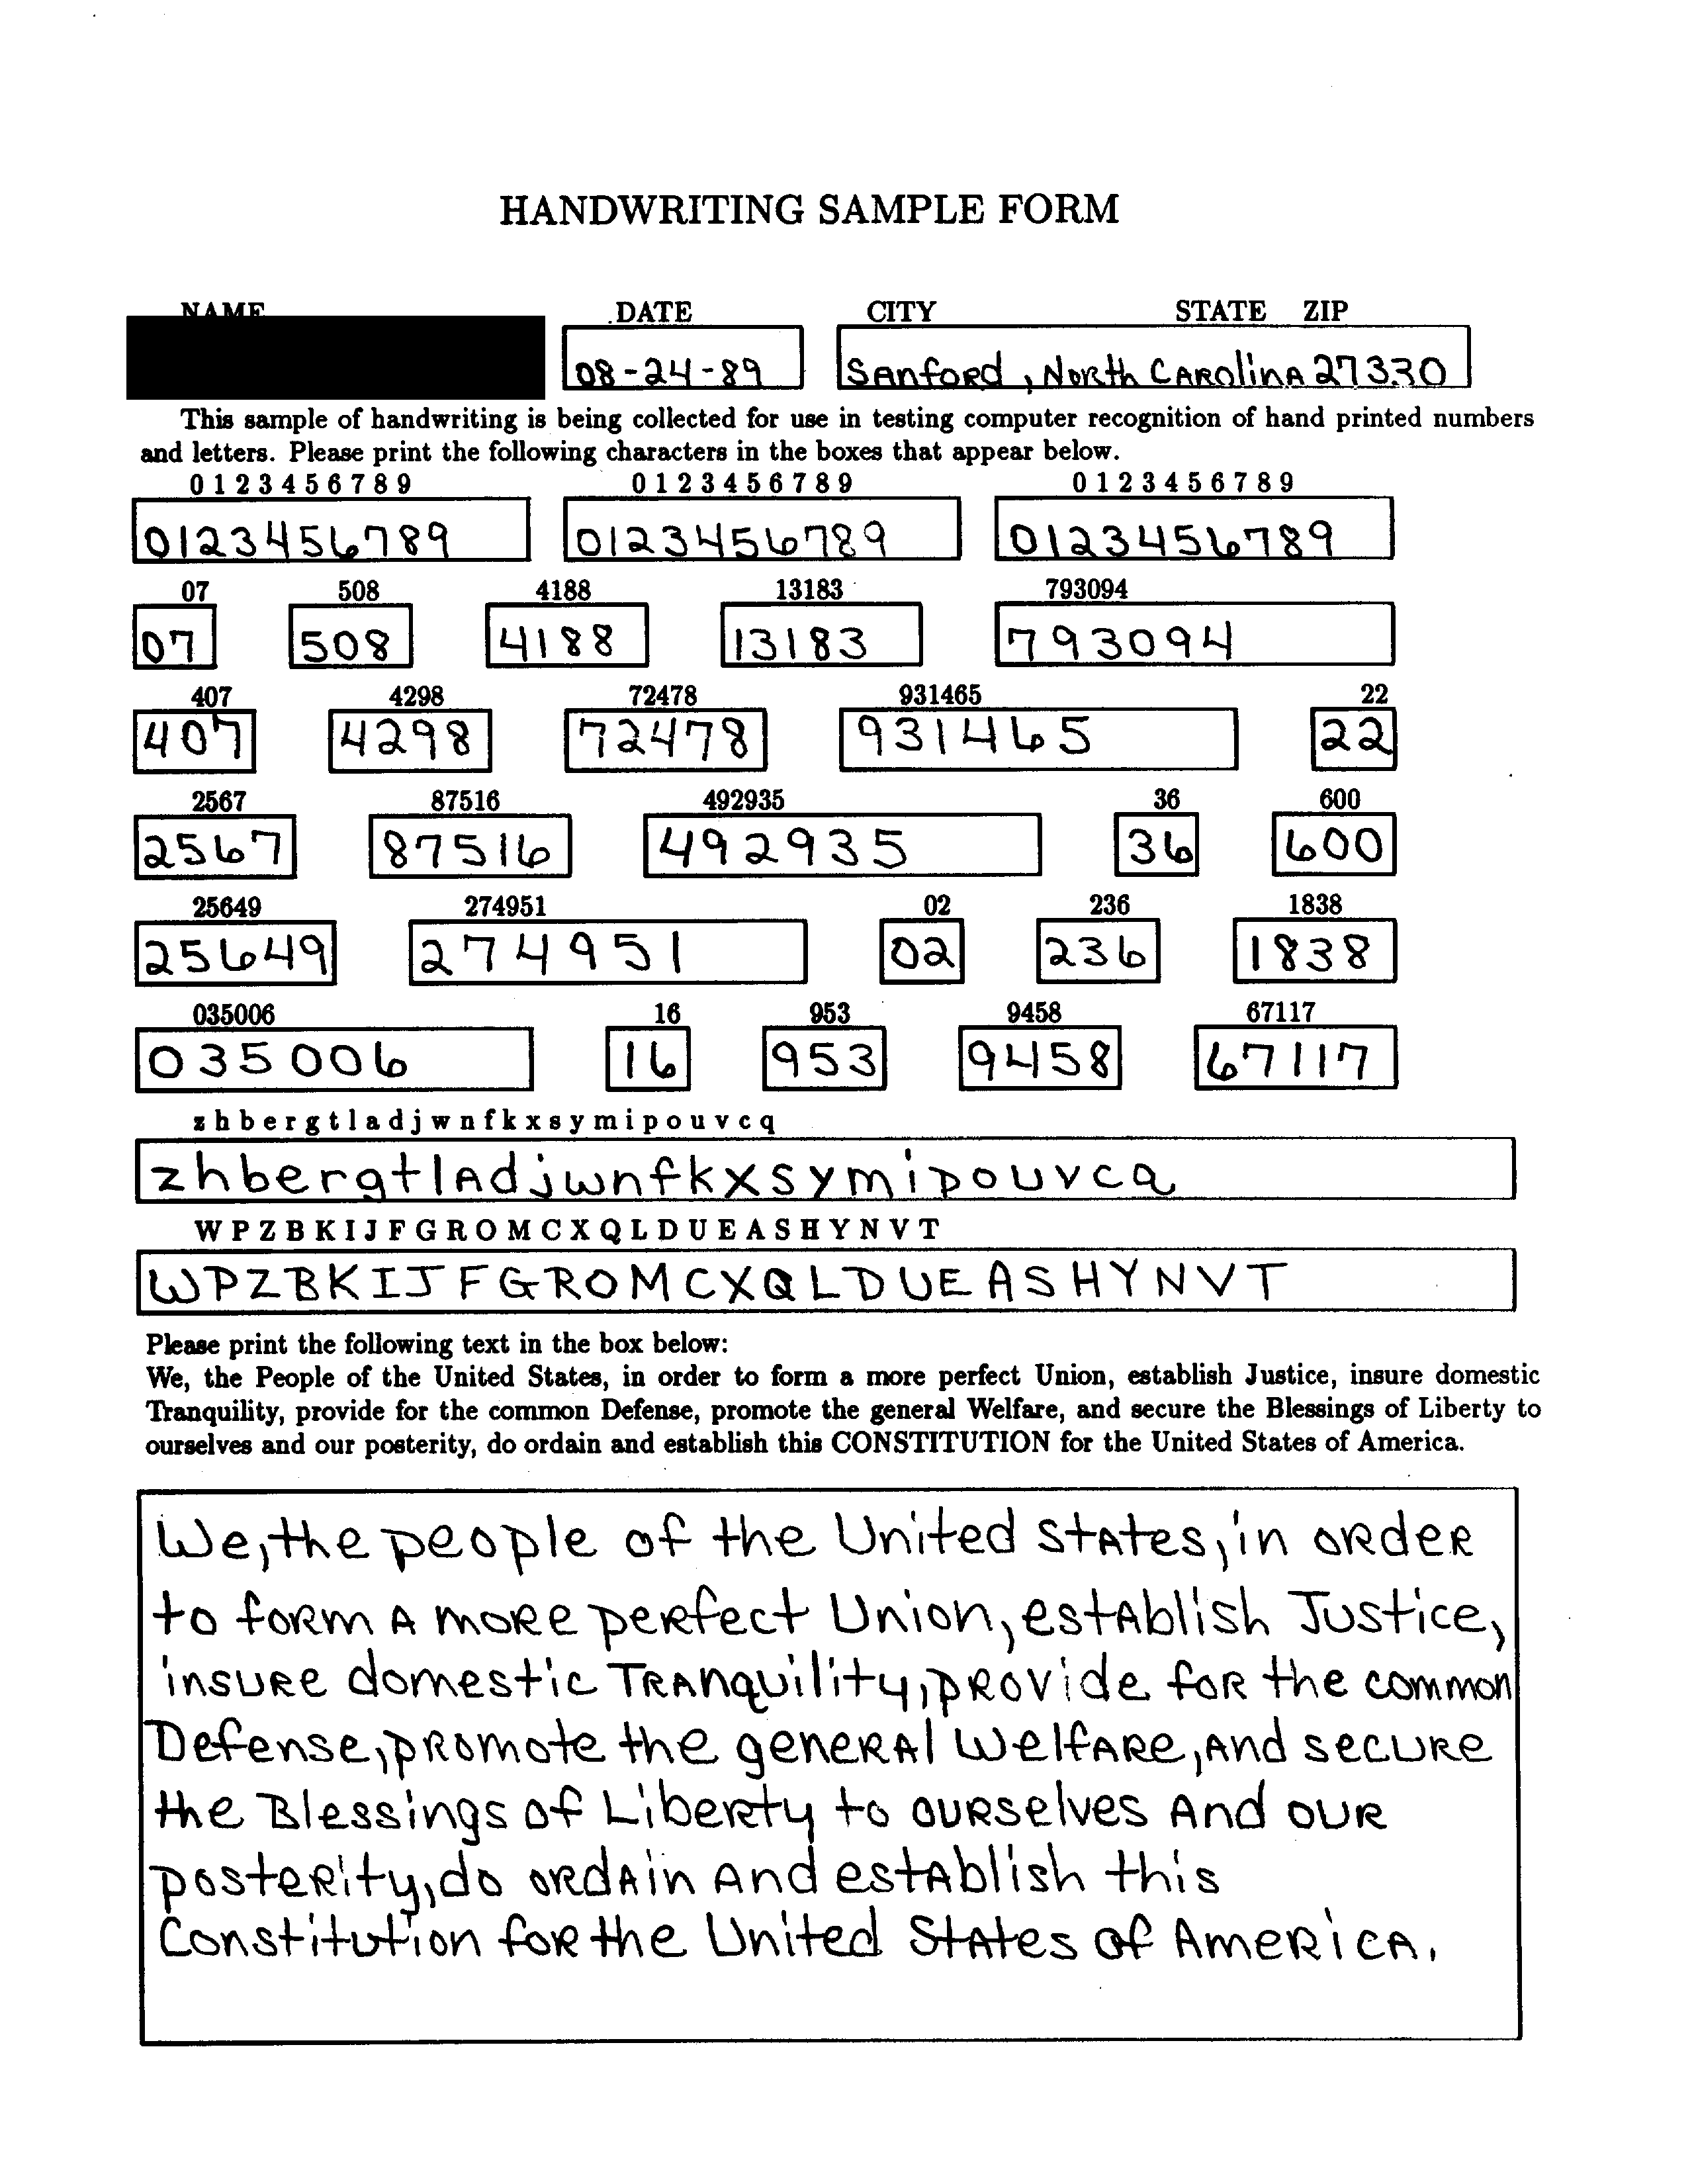 HANDWRITING SAMPLE FORM
NAME DATE CITY STATE ZIP
08-24-89 Sanford, North Carolina 27330
This sample of handwriting is being collected for use in testing computer recognition of hand printed numbers
and letters. Please print the following characters in the boxes that appear below.
0 1 2 3 4 5 6 7 8 9 0 1 2 3 4 5 6 7 8 9 0 1 2 3 4 5 6 7 8 9
0123456789 0123456789 0123456789
07 508 4188 13183 793094
07 508 4188 13183 793094
407 4298 72478 931465 22
407 4298 72478 931465 22
2567 87516 492935 36 600
2567 87516 492935 36 600
25649 274951 02 236 1838
25649 274951 02 236 1838
035006 16 953 9458 67117
035006 16 953 9458 67117
z h b e r g t l a d j w n f k x s y m i p o u v c q
zhbergtladjwnfkxsymipouvcq
W P Z B K I J F G R O M C X Q L D U E A S H Y N V T
WPZBKIJFGROMCXQLDUEASHYNVT
Please print the following text in the box below:
We, the People of the United States, in order to form a more perfect Union, establish Justice, insure domestic
Tranquility, provide for the common Defense, promote the general Welfare, and secure the Blessings of Liberty to
ourselves and our posterity, do ordain and establish this CONSTITUTION for the United States of America.
We, the people of the United States, in order
to form a more perfect Union, establish Justice,
insure domestic Tranquility, provide for the common
Defense, promote the general Welfare, and secure
the Blessings of Liberty to ourselves and our
posterity, do ordain and establish this
Constitution for the United States of America.